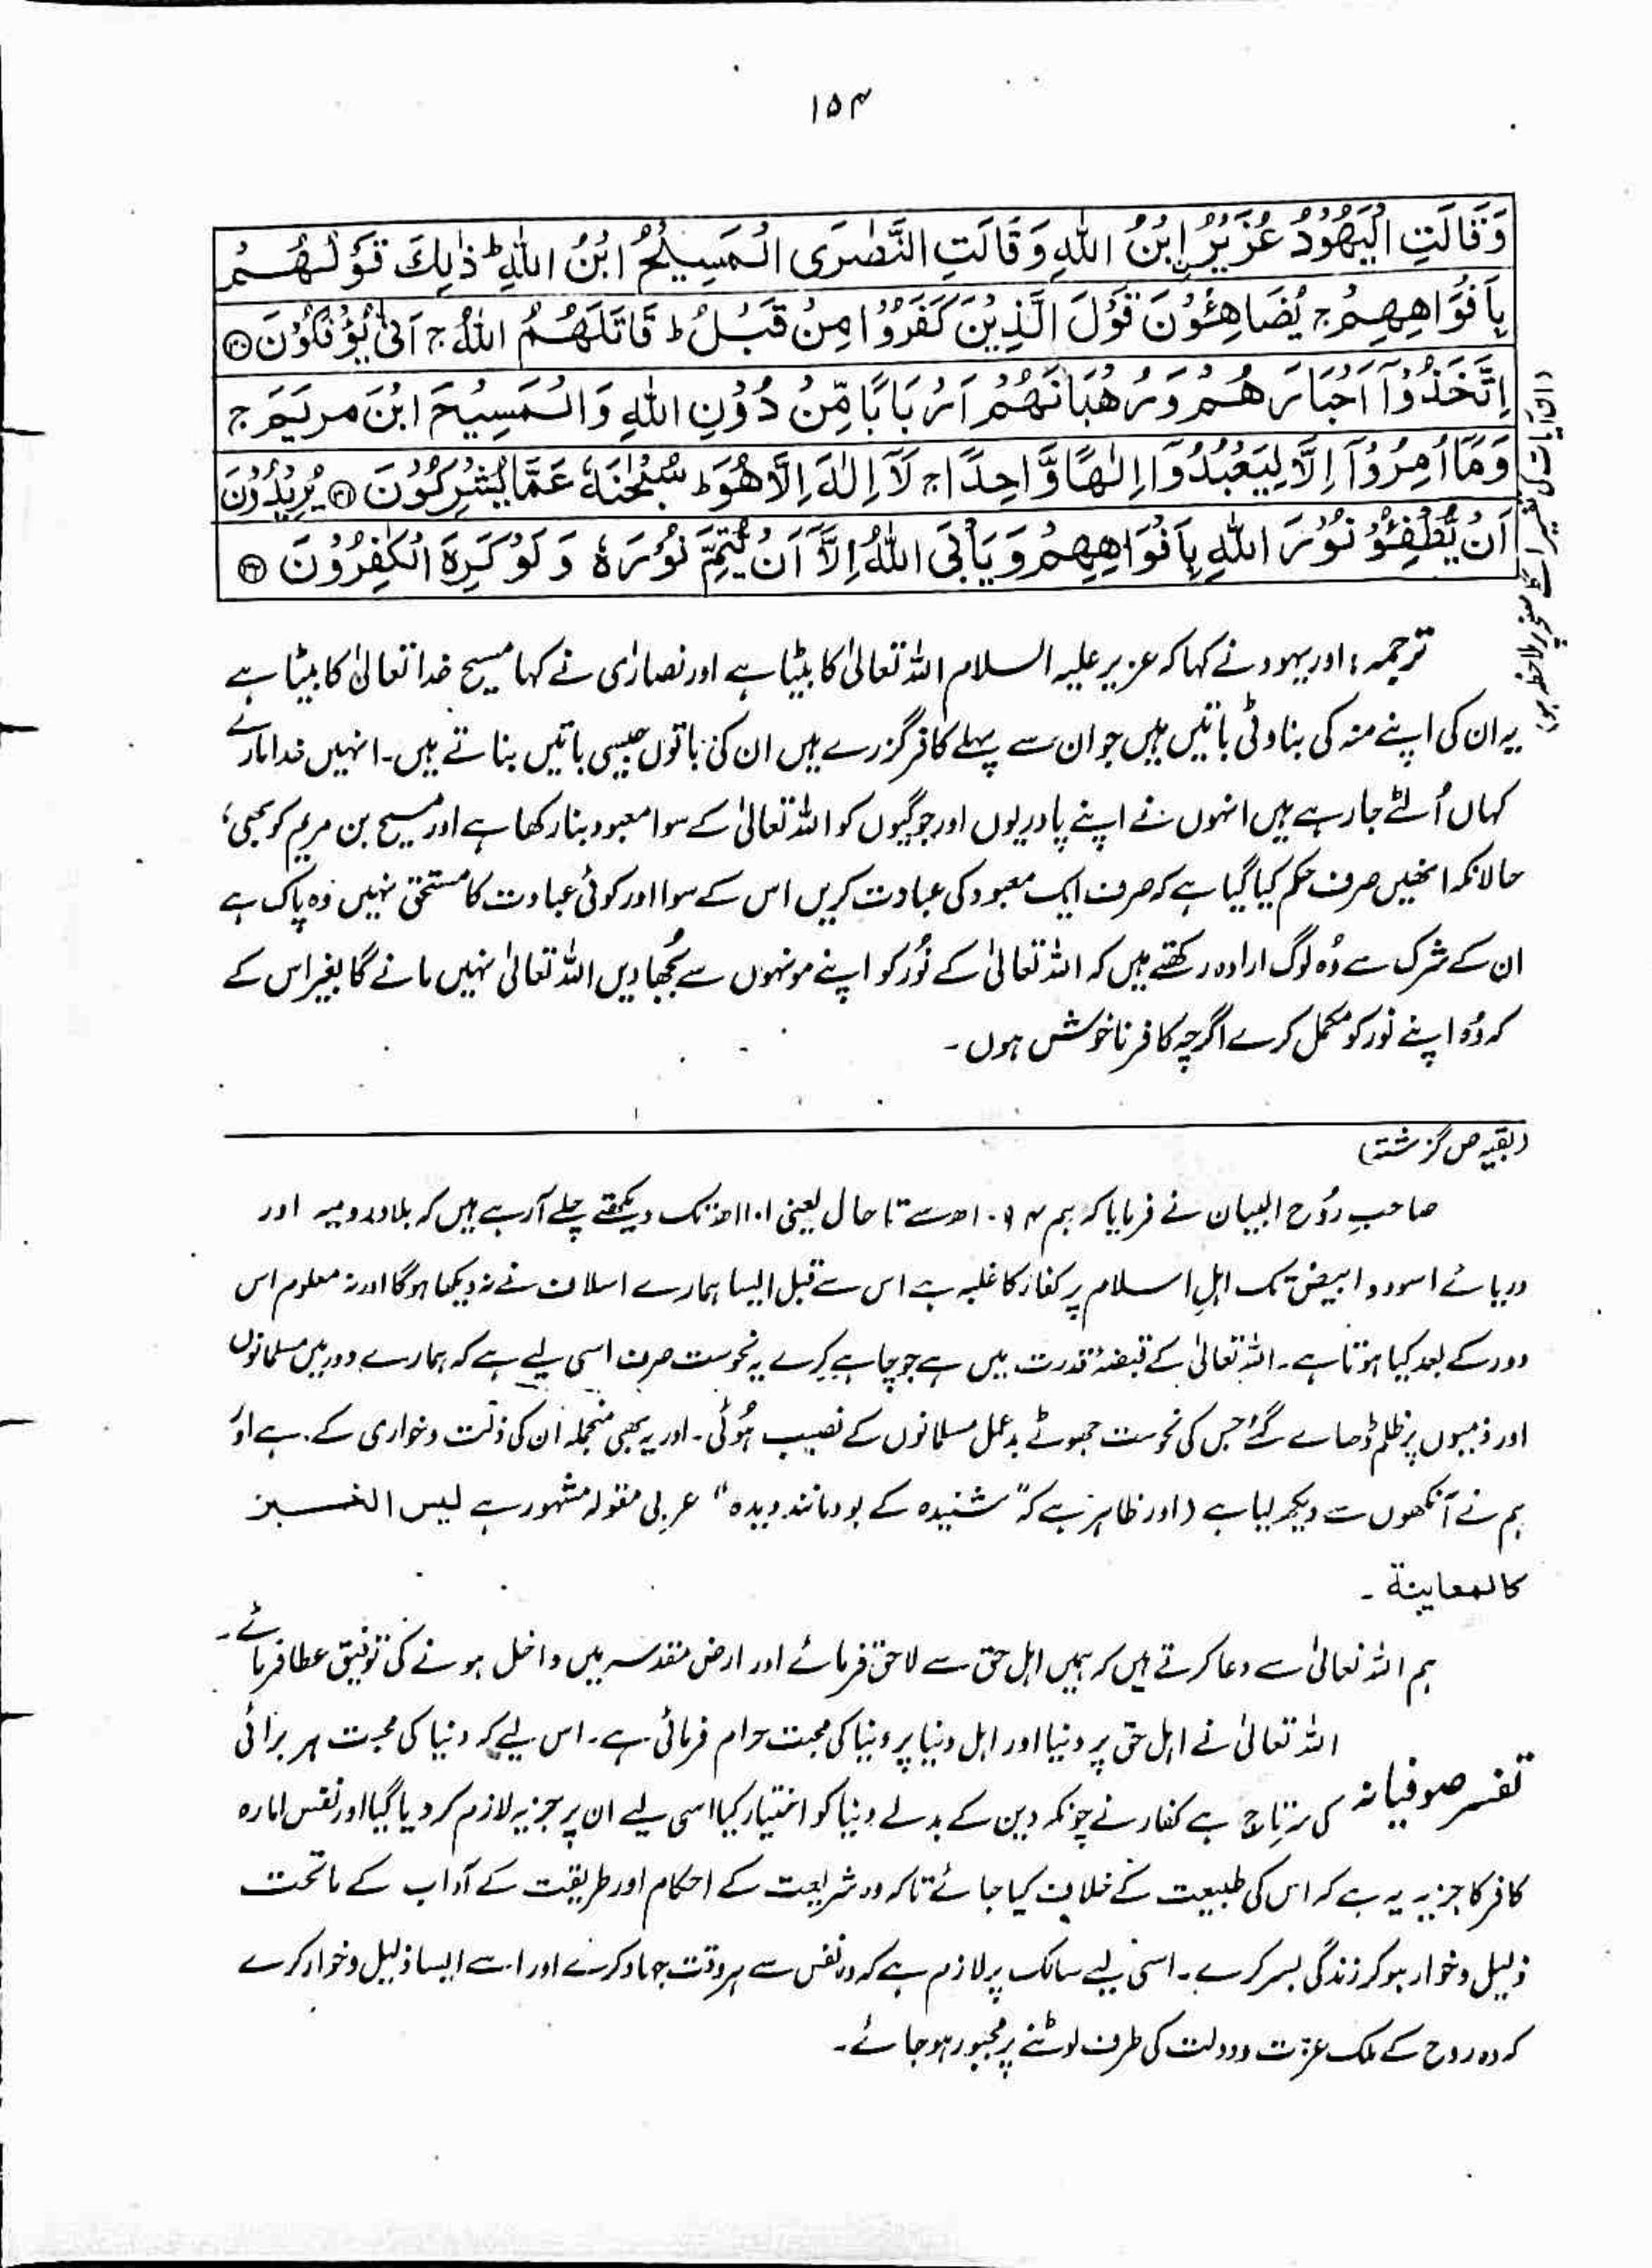 ۱۵۴
وَقَالَتِ الْيَهُوْدُ عُزَيْرُ ِ۟ابْنُ اللّٰهِ وَقَالَتِ النَّصٰرَى الْمَسِيْحُ ابْنُ اللّٰهِ ؕ ذٰلِكَ قَوْلُهُمْ
بِاَفْوَاهِهِمْ ج يُضَاهِئُوْنَ قَوْلَ الَّذِيْنَ كَفَرُوْا مِنْ قَبْلُ ط قَاتَلَهُمُ اللّٰهُ ج اَنّٰى يُؤْفَكُوْنَ ۳۰
اِتَّخَذُوْٓا اَحْبَارَهُمْ وَرُهْبَانَهُمْ اَرْبَابًا مِّنْ دُوْنِ اللّٰهِ وَالْمَسِيْحَ ابْنَ مريَمَ ج
وَمَآ اُمِرُوْٓا اِلَّا لِيَعْبُدُوْٓا اِلٰهًا وَّاحِدًا ج لَآ اِلٰهَ اِلَّا هُوَ ط سُبْحٰنَهٗ عَمَّا يُشْرِكُوْنَ ۳۱ يُرِيْدُوْنَ
اَنْ يُّطْفِئُوْ نُوْرَ اللّٰهِ بِاَفْوَاهِهِمْ وَيَاْبَى اللّٰهُ اِلَّآ اَنْ يُّتِمَّ نُوْرَهٗ وَلَوْ كَرِهَ الْكٰفِرُوْنَ ۳۲
(ان آیات کی تفسیر اگلے صفحہ پر ملاحظہ ہو)
ترجمہ : اور یہود نے کہا کہ عزیر علیہ السلام اللہ تعالیٰ کا بیٹا ہے اور نصارٰی نے کہا مسیح خدا تعالیٰ کا بیٹا ہے
یہ ان کی اپنے منہ کی بناوٹی باتیں ہیں جو ان سے پہلے کافر گزرے ہیں ان کی باتوں جیسی باتیں بناتے ہیں۔ انہیں خدا مارے
کہاں اُلٹے جا رہے ہیں انہوں نے اپنے پادریوں اور جوگیوں کو اللہ تعالیٰ کے سوا معبود بنا رکھا ہے اور مسیح بن مریم کو بھی،
حالانکہ انھیں صرف حکم کیا گیا ہے کہ صرف ایک معبود کی عبادت کریں اس کے سوا اور کوئی عبادت کا مستحق نہیں وُہ پاک ہے
ان کے شرک سے وُہ لوگ ارادہ رکھتے ہیں کہ اللہ تعالیٰ کے نُور کو اپنے مونہوں سے بُجھا دیں اللہ تعالیٰ نہیں مانے گا بغیر اس کے
کہ وُہ اپنے نور کو مکمل کرے اگرچہ کافر ناخوش ہوں۔
(بقیہ ص گزشتہ)
صاحبِ رُوح البیان نے فرمایا کہ ہم ۱۰۹۴ھ سے تا حال یعنی ۱۱۰۱ھ تک دیکھتے چلے آرہے ہیں کہ بلاد رومیہ اور
دریائے اسود و ابیض تک اہلِ اسلام پر کفار کا غلبہ ہے اس سے قبل ایسا ہمارے اسلاف نے نہ دیکھا ہوگا اور نہ معلوم اس
دور کے بعد کیا ہوتا ہے۔ اللہ تعالیٰ کے قبضۂ قدرت میں ہے جو چاہے کرے یہ نحوست صرف اسی لیے ہے کہ ہمارے دور میں مسلمانوں
اور ذمیوں پر ظلم ڈھائے گئے جس کی نحوست جھوٹے بدعمل مسلمانوں کے نصیب ہُوئی۔ اور یہ بھی منجملہ ان کی ذلت و خواری کے ہے اور
ہم نے آنکھوں سے دیکھ لیا ہے (اور ظاہر ہے کہ "شنیدہ کے بود مانند دیدہ" عربی مقولہ مشہور ہے لیس الخبر
کالمعاینة۔
ہم اللہ تعالیٰ سے دعا کرتے ہیں کہ ہمیں اہل حق سے لاحق فرمائے اور ارض مقدسہ میں داخل ہونے کی توفیق عطا فرمائے۔
تفسیر صوفیانہ اللہ تعالیٰ نے اہل حق پر دنیا اور اہل دنیا پر دنیا کی محبت حرام فرمائی ہے۔ اس لیے کہ دنیا کی محبت ہر برائی
کی سرتاج ہے کفار نے چونکہ دین کے بدلے دنیا کو اختیار کیا اسی لیے ان پر جزیہ لازم کر دیا گیا اور نفس امارہ
کافر کا جزیہ یہ ہے کہ اس کی طبیعت کے خلاف کیا جائے تاکہ وہ شریعت کے احکام اور طریقت کے آداب کے ماتحت
ذلیل و خوار ہو کر زندگی بسر کرے۔ اسی لیے سالک پر لازم ہے کہ وہ نفس سے ہر وقت جہاد کرے اور اسے ایسا ذلیل و خوار کرے
کہ وہ روح کے ملک عزت و دولت کی طرف لوٹنے پر مجبور ہو جائے۔